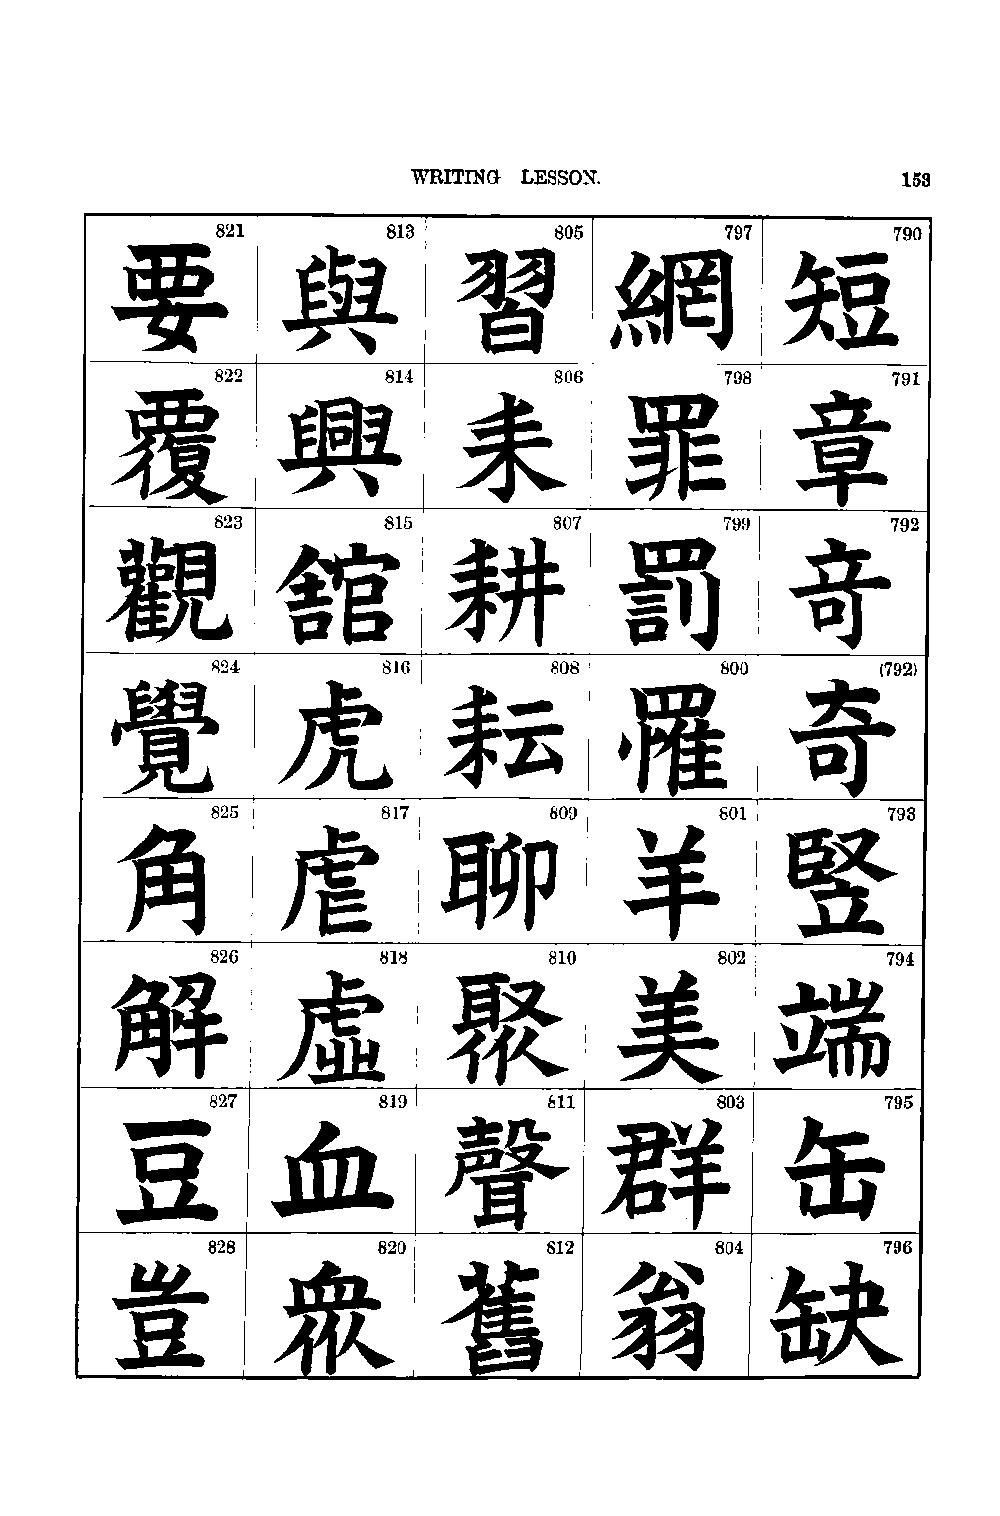 WRITING LESSON. 153
790
短
791
章
792
竒
(792)
奇
793
竪
794
端
795
缶
796
缺
797
網
798
罪
799
罰
800
罹
801
羊
802
美
803
群
804
翁
805
習
806
耒
807
耕
808
耘
809
聊
810
聚
811
聲
812
舊
813
與
814
興
815
舘
816
虎
817
虐
818
虛
819
血
820
衆
821
要
822
覆
823
觀
824
覺
825
角
826
解
827
豆
828
豈